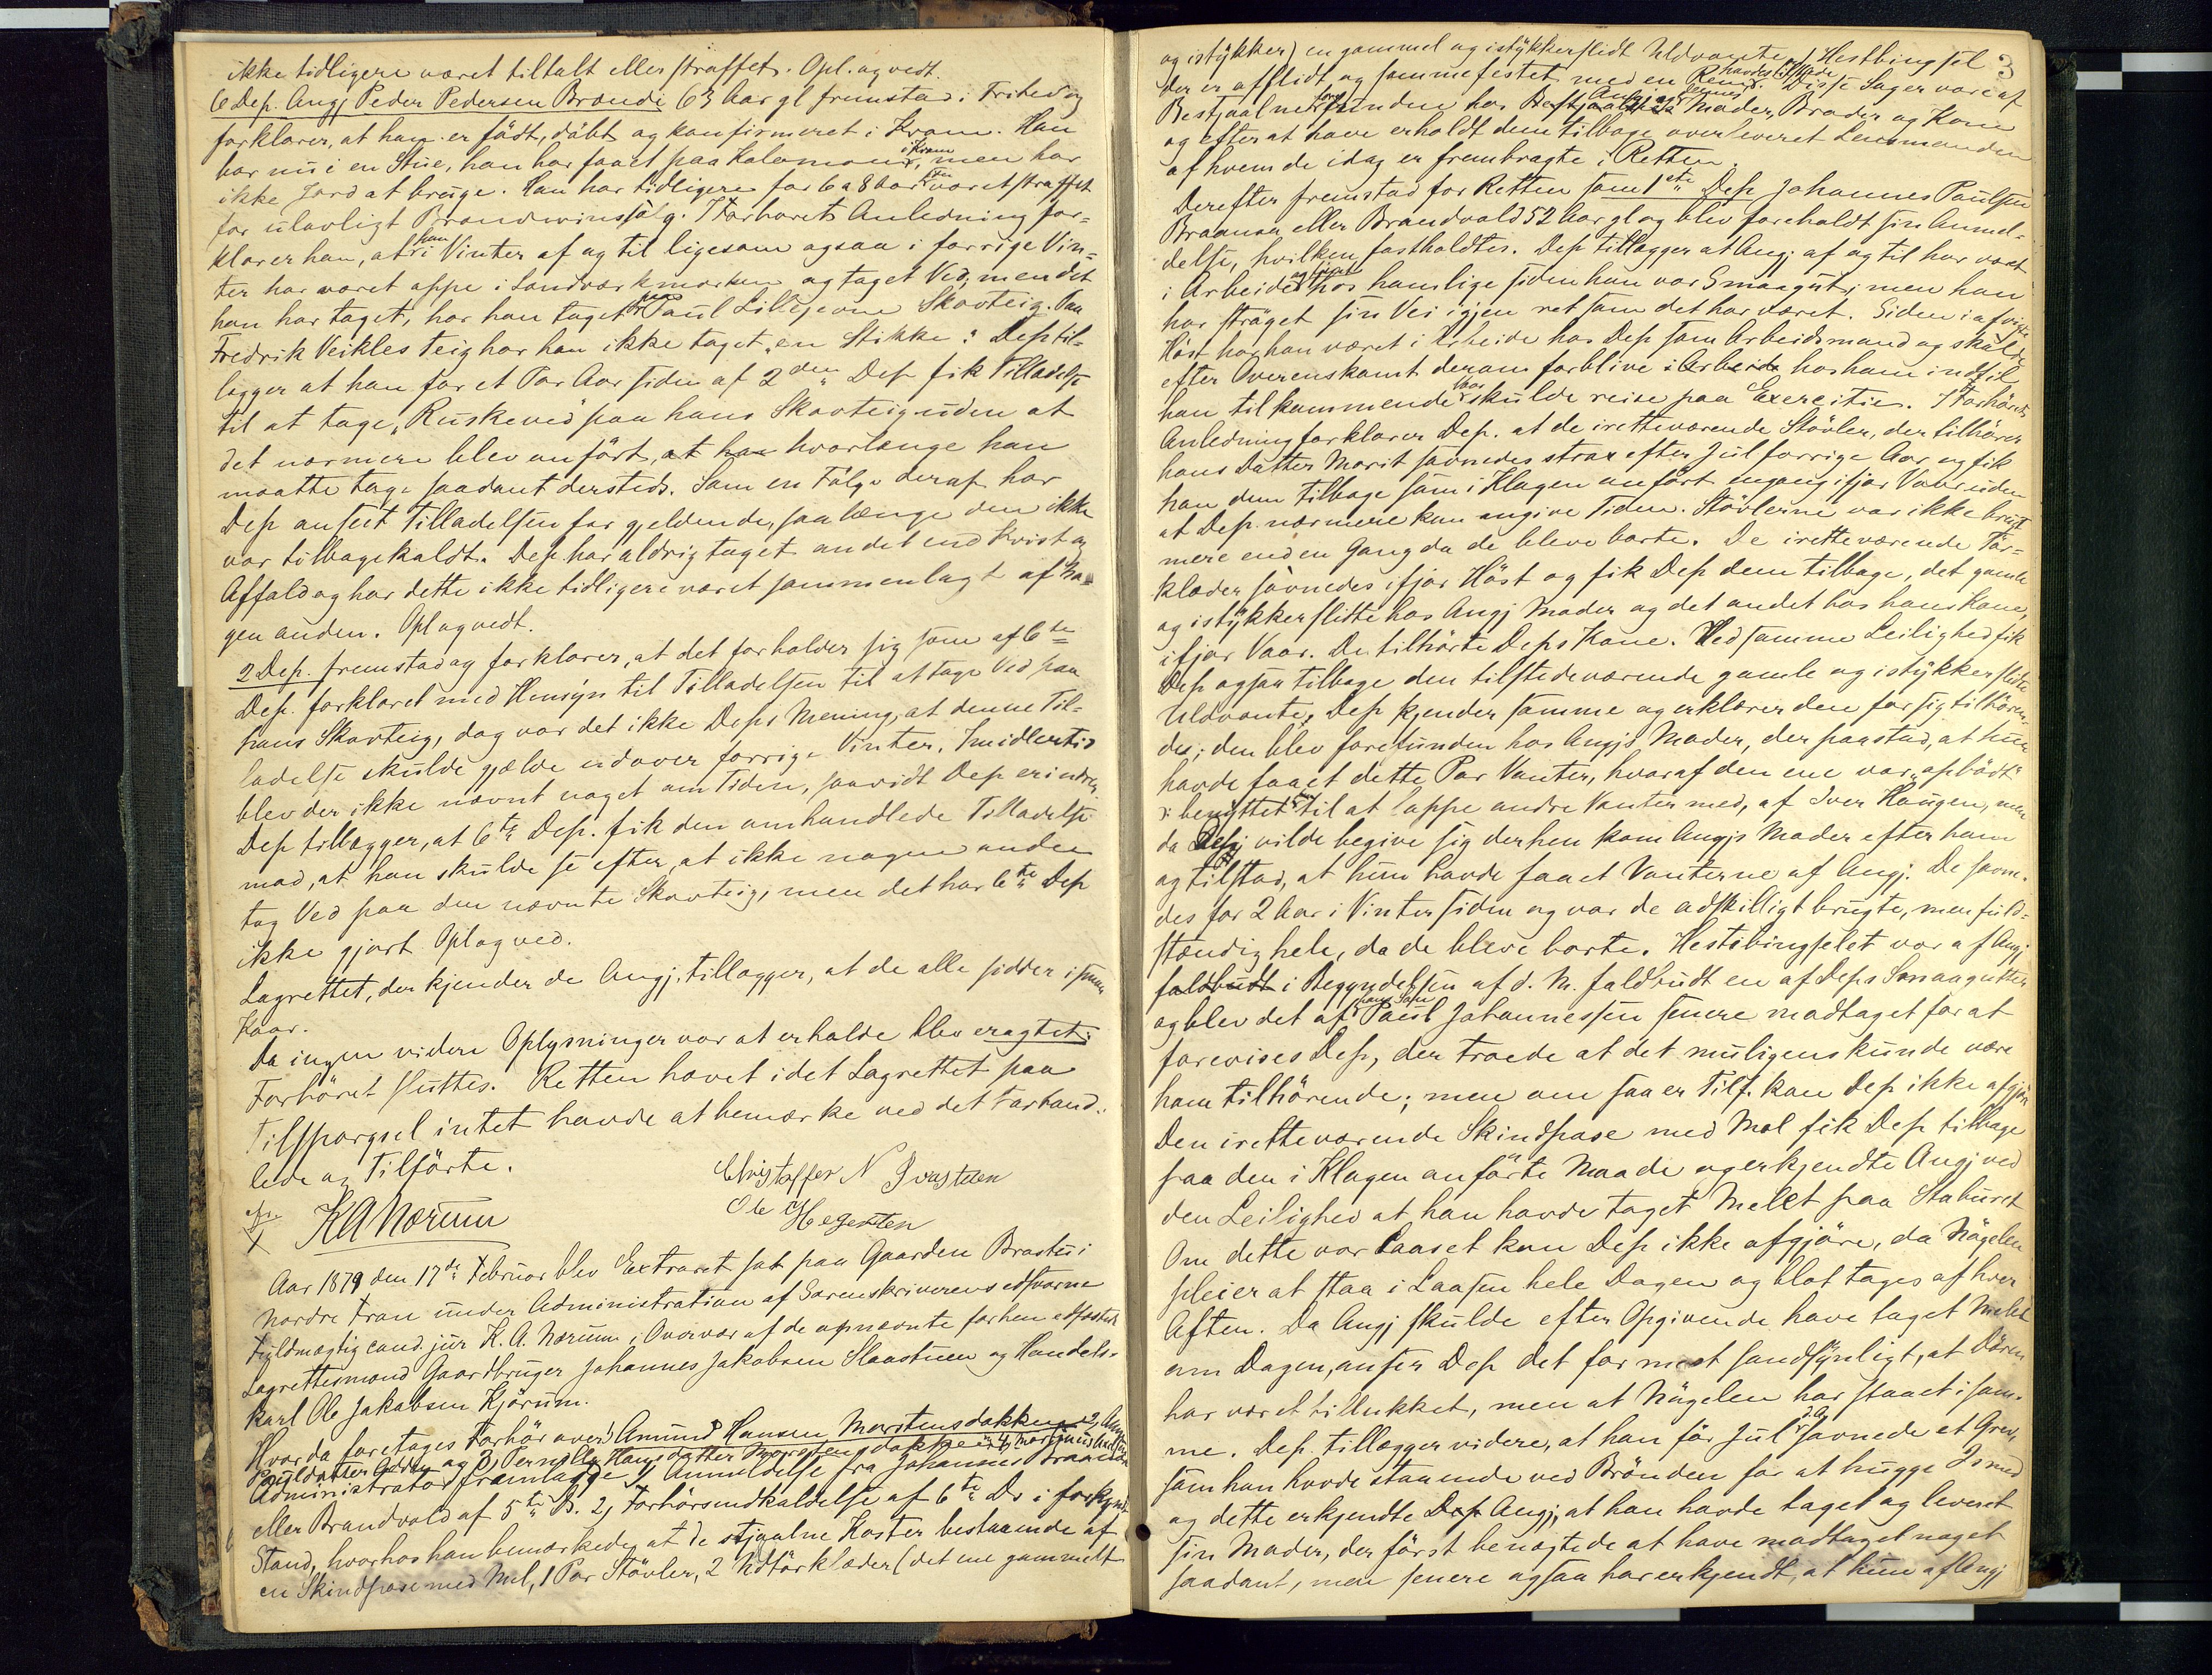 ikke tidligere været tiltalt eller straffet. Opl. og vedt.
6 Dep. Angj Peder Pedersen Brænde 63 Aar gl fremstod i Frihed og
forklarer, at han er födt, döbt og konfirmeret i Fron. Han
bor nu i en Stue, han har faaet paa Kolomoen i Fron, men har
ikke Jord at bruge. Han har tidligere for 6 a 8 Aar siden været straffet
for ulovligt Brændevinssalg. I Forhörets Anledning for-
klarer han, at han i Vinter af og til ligesom ogsaa i forrige Vin-
ter har været oppe i Sandvækmarken og taget Ved, men det
han har taget, har han taget paa Paul Lillejevne Skovteig. Paa
Fredrik Veikles Teig har han ikke taget "en Stikke". Dep til-
lægger at han for et Par Aar siden af 2den Dep fik Tilladelse
til at tage "Ruskeved" paa hans Skovteig uden at
det nærmere blev anfört, at han hvorlænge han
maatte tage saadant dersteds. Som en Fölge deraf har
Dep anseet Tilladelsen for gjeldende, saalænge den ikke
var tilbagekaldt. Dep har aldrig taget andet end Kvist og
Affald og har dette ikke tidligere været sammenlagt af no-
gen anden. Opl og vedt.
2 Dep. fremstod og forklarer, at det forholder sig som af 6te
Dep. forklaret med Hensyn til Tilladelsen til at tage Ved paa
hans Skovteig, dog var det ikke Deps Mening, at denne Til-
ladelse skulde gjælde udover forrige Vinter. Imidlertid
blev der ikke nævnt noget om Tiden, saavidt Dep erindrer.
Dep tillægger, at 6te Dep. fik den omhandlede Tilladelse
mod, at han skulde se efter, at ikke nogen anden
tog Ved paa den nævnte Skovteig, men det har 6te Dep
ikke gjort. Opl og ved.
Lagrettet, der kjender de Angj. tillægger, at de alle sidder i smaa
Kaar.
Da ingen videre Oplysninger var at erholde blev eragtet:
Forhöret sluttes. Retten hævet idet Lagrettet paa
Tilspörgsel intet havde at bemærke ved det Forhand-
lede og Tilförte.
K A Nærum
Christoffer N
Ole
Aar 1879 den 17de Februar blev Extraret sat paa Gaarden Brostu i
Nordre Fron under Administration af Sorenskriverens edsvorne
Fuldmægtig cand. jur K. A. Nærum i Overvær af de opnævnte forhen edfæstede
Lagrettesmænd Gaardbruger Johannes Jakobsen Slaastuen og Handels-
karl Ole Jakobsen Kjörum.
Hvor da foretages Forhör over 1) Amund Hansen Morstensbakken 2)
Pauldatter og 3) Pernille Hansdatter
Administrator fremlagde 1) Anmeldelse fra Johannes Braanaa
eller Brandvold af 5te ds. 2) Forhörsindkaldelse af 6te Ds i forkyndt
Stand, hvorhos han bemærkede, at de stjaalne Koster bestaaende af
en Skindpose med Mel, 1 Par Stövler, 2 Uldtörklæder (det ene gammelt
3
og istykker) en gammel og istykkerslidt Uldvante og Hestbingsel
der er afslidt og sammefestet med en Rem. Disse Sager vare af
Bestjaalne funden hos Angjs Moder, Broder og Kone
og efter at have erholdt dem tilbage overleveret Lensmanden
af hvem de idag er frembragte i Retten.
Derefter fremstod for Retten som 1ste Dep Johannes Paulsen
Braanaa eller Brandvold 52 Aar gl og blev foreholdt sin Anmel-
delse, hvilken fastholdtes. Dep tillægger at Angj. af og til har været
i Arbeide og tjent hos ham lige siden han var Smaagut, men han
har ströget sin Vei igjen ret som det har været. Siden i afvigte
Höst har han været i Arbeide hos Dep som Arbeidsmand og skulde
efter Overenskomst derom forblive i Arbeide hos ham indtil
han tilkommende Vaar skulde reise paa Exercitie. I Forhörets
Anledning forklarer Dep. at de iretteværende Stövler, der tilhörer
hans Datter Marit savnedes strax efter Jul forrige Aar og fik
han dem tilbage som i Klagen anfört engang ifjor Vaar uden
at Dep. nærmere kan angive Tiden. Stövlerne var ikke brugt
mere end en Gang da de bleve borte. De iretteværende Tör-
klæder savnedes ifjor Höst og fik Dep dem tilbage, det gamle
og istykkerslidte hos Angj Moder og det andet hos hans Kone,
ifjor Vaar. De tilhörte Deps Kone. Ved samme Leilighed fik
Dep ogsaa tilbage den tilstedeværende gamle og istykkerslidte
Uldvante. Dep kjender samme og erklærer den for sig tilhören-
de; den blev forefunden hos Angjs Moder, der paastod, at hun
havde faaet dette Par Vanter, hvoraf den ene var "opbödt"
: benyttet til at lappe andre Vanter med, af Iver Haugen, men
da Dep vilde begive sig derhen kom Angjs Moder efter ham
og tilstod, at hun havde faaet Vanterne af Angj. De savne-
des for 2 Aar i Vinter siden og var de adskilligt brugte, men fuld-
stændig hele, da de bleve borte. Hestebingselet var af Angj
faldbudt i Begyndelsen af d. M. faldbudt en af Deps Smaagutter
og blev det af hans Sön Paul Johannessen senere modtaget for at
forevises Dep, der troede at det muligens kunde være
ham tilhörende; men om saa er Tilf. kan Dep ikke afgjöre
Den iretteværende Skindpose med Mel fik Dep tilbage
paa den i Klagen anförte Maade og erkjendte Angj ved
den Leilighed at han havde taget Melet paa Staburet
Om dette var laaset kan Dep ikke afgjöre, da Nögelen
pleier at staa i Laasen hele Dagen og blot tages af hver
Aften. Da Angj skulde efter Opgivende have taget Melet
om Dagen, anser Dep det for mest sandsynligt, at Dören
har været tillukket, men at Nögelen har staaet i sam-
me. Dep. tillægger videre, at han för Jul f. A. savnede et Grev,
som han havde staaende ved Brönden for at hugge Is med
og dette erkjendte Dep Angj, at han havde taget og leveret
sin Moder, der först benægtede at have modtaget noget
saadant, men senere ogsaa har erkjendt, at hun af Angj